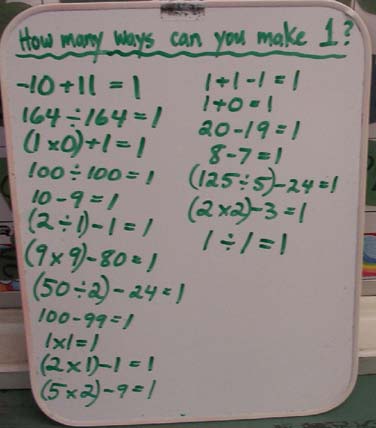 How many ways can you make 1?
-10 + 11 = 1
164 ÷ 164 = 1
(1 x 0) + 1 = 1
100 ÷ 100 = 1
10 - 9 = 1
(2 ÷ 1) - 1 = 1
(9 x 9) - 80 = 1
(50 ÷ 2) - 24 = 1
100 - 99 = 1
1 x 1 = 1
(2 x 1) - 1 = 1
(5 x 2) - 9 = 1
1 + 1 - 1 = 1
1 + 0 = 1
20 - 19 = 1
8 - 7 = 1
(125 ÷ 5) - 24 = 1
(2 x 2) - 3 = 1
1 ÷ 1 = 1